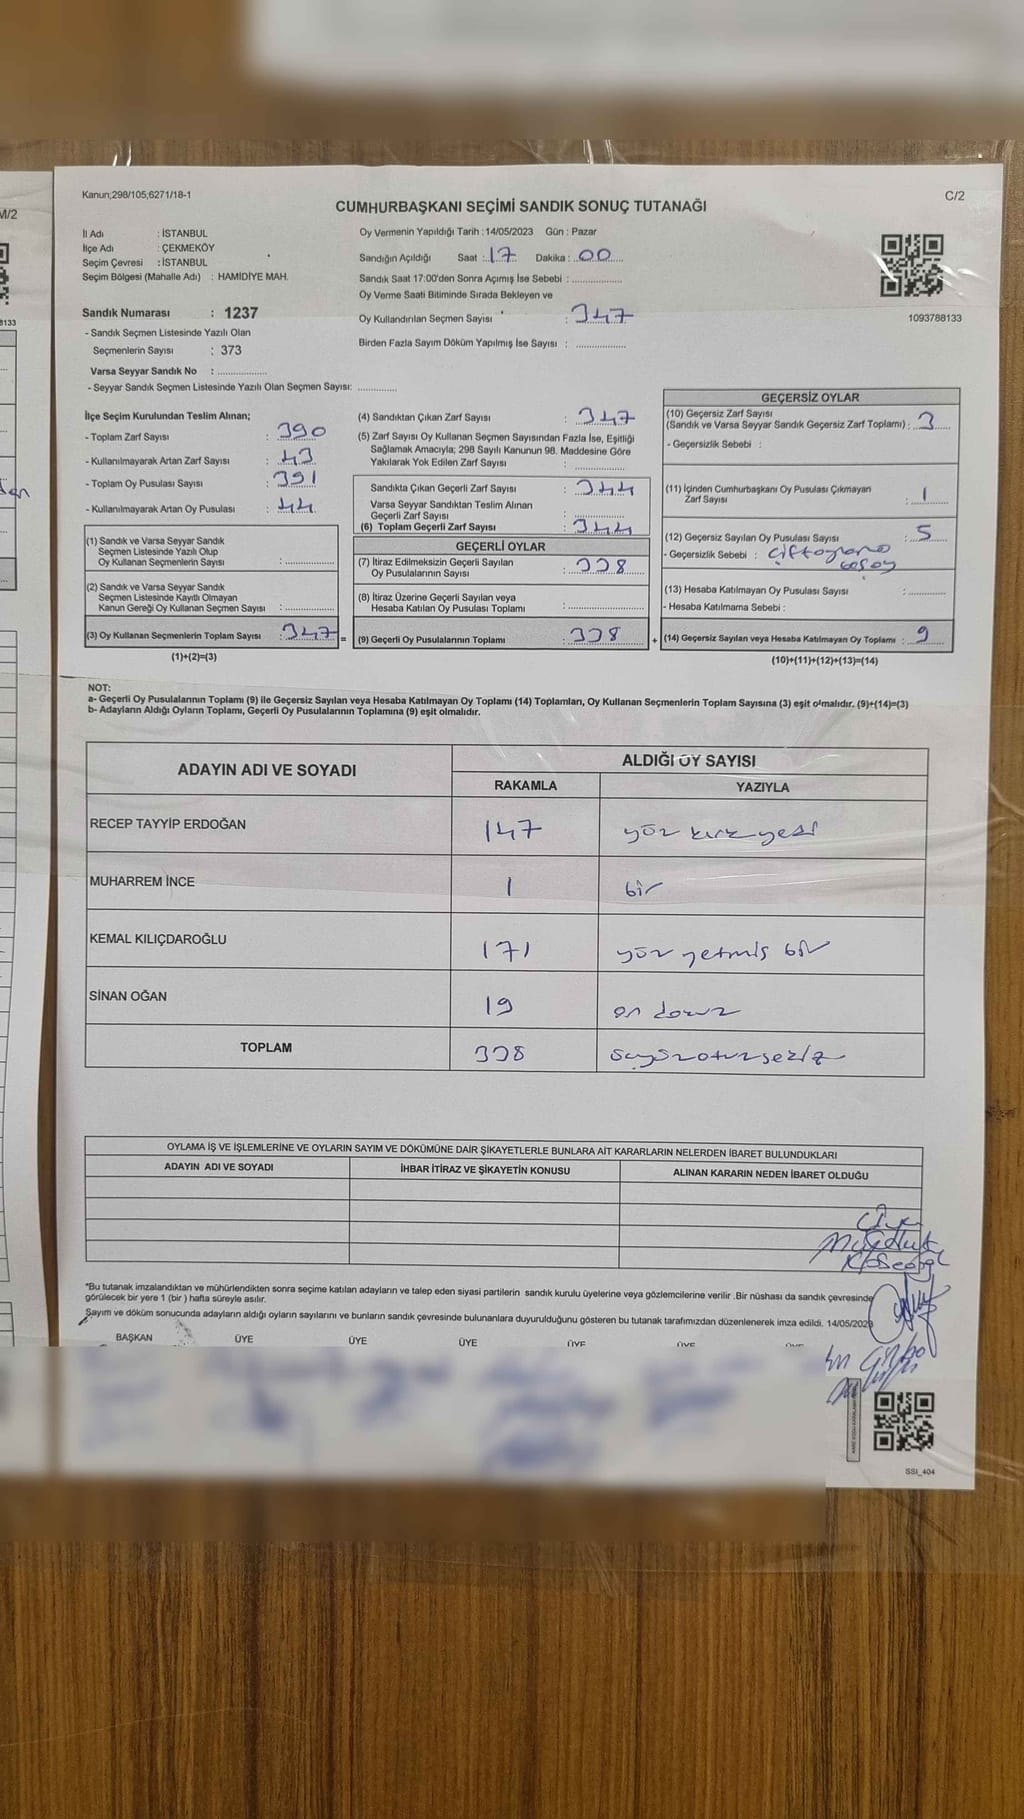 Kanun;298/105;6271/18-1
C/2
M/2
CUMHURBAŞKANI SEÇİMİ SANDIK SONUÇ TUTANAĞI
İl Adı : İSTANBUL
İlçe Adı : ÇEKMEKÖY
Seçim Çevresi : İSTANBUL
Seçim Bölgesi (Mahalle Adı) : HAMİDİYE MAH.
Oy Vermenin Yapıldığı Tarih : 14/05/2023 Gün : Pazar
Sandığın Açıldığı Saat : 17 Dakika : 00
Sandık Saat 17:00'den Sonra Açımış İse Sebebi : ..............
Oy Verme Saati Bitiminde Sırada Bekleyen ve
Oy Kullandırılan Seçmen Sayısı : 347
Birden Fazla Sayım Döküm Yapılmış İse Sayısı : ..............
1093788133
8133
Sandık Numarası : 1237
- Sandık Seçmen Listesinde Yazılı Olan
Seçmenlerin Sayısı : 373
Varsa Seyyar Sandık No : ..............
- Seyyar Sandık Seçmen Listesinde Yazılı Olan Seçmen Sayısı: ............
İlçe Seçim Kurulundan Teslim Alınan;
- Toplam Zarf Sayısı : 390
- Kullanılmayarak Artan Zarf Sayısı : 43
- Toplam Oy Pusulası Sayısı : 391
- Kullanılmayarak Artan Oy Pusulası : 44
(1) Sandık ve Varsa Seyyar Sandık
Seçmen Listesinde Yazılı Olup
Oy Kullanan Seçmenlerin Sayısı : ..............
(2) Sandık ve Varsa Seyyar Sandık
Seçmen Listesinde Kayıtlı Olmayan
Kanun Gereği Oy Kullanan Seçmen Sayısı : ..............
(3) Oy Kullanan Seçmenlerin Toplam Sayısı : 347 =
(1)+(2)=(3)
(4) Sandıktan Çıkan Zarf Sayısı : 347
(5) Zarf Sayısı Oy Kullanan Seçmen Sayısından Fazla İse, Eşitliği
Sağlamak Amacıyla; 298 Sayılı Kanunun 98. Maddesine Göre
Yakılarak Yok Edilen Zarf Sayısı : ..............
Sandıkta Çıkan Geçerli Zarf Sayısı : 344
Varsa Seyyar Sandıktan Teslim Alınan
Geçerli Zarf Sayısı : ..............
(6) Toplam Geçerli Zarf Sayısı : 344
GEÇERLİ OYLAR
(7) İtiraz Edilmeksizin Geçerli Sayılan
Oy Pusulalarının Sayısı : 338
(8) İtiraz Üzerine Geçerli Sayılan veya
Hesaba Katılan Oy Pusulası Toplamı : ..............
(9) Geçerli Oy Pusulalarının Toplamı : 338 +
GEÇERSİZ OYLAR
(10) Geçersiz Zarf Sayısı
(Sandık ve Varsa Seyyar Sandık Geçersiz Zarf Toplamı) : 3
- Geçersizlik Sebebi :
(11) İçinden Cumhurbaşkanı Oy Pusulası Çıkmayan
Zarf Sayısı : 1
(12) Geçersiz Sayılan Oy Pusulası Sayısı : 5
- Geçersizlik Sebebi :
(13) Hesaba Katılmayan Oy Pusulası Sayısı : ..............
- Hesaba Katılmama Sebebi :
(14) Geçersiz Sayılan veya Hesaba Katılmayan Oy Toplamı : 9
(10)+(11)+(12)+(13)=(14)
NOT:
a- Geçerli Oy Pusulalarının Toplamı (9) ile Geçersiz Sayılan veya Hesaba Katılmayan Oy Toplamı (14) Toplamları, Oy Kullanan Seçmenlerin Toplam Sayısına (3) eşit olmalıdır. (9)+(14)=(3)
b- Adayların Aldığı Oyların Toplamı, Geçerli Oy Pusulalarının Toplamına (9) eşit olmalıdır.
ADAYIN ADI VE SOYADI ALDIĞI OY SAYISI
RAKAMLA YAZIYLA
RECEP TAYYİP ERDOĞAN 147 yüz kırk yedi
MUHARREM İNCE 1 bir
KEMAL KILIÇDAROĞLU 171 yüz yetmiş bir
SİNAN OĞAN 19 on dokuz
TOPLAM 338 üçyüzotuzsekiz
OYLAMA İŞ VE İŞLEMLERİNE VE OYLARIN SAYIM VE DÖKÜMÜNE DAİR ŞİKAYETLERLE BUNLARA AİT KARARLARIN NELERDEN İBARET BULUNDUKLARI
ADAYIN ADI VE SOYADI İHBAR İTİRAZ VE ŞİKAYETİN KONUSU ALINAN KARARIN NEDEN İBARET OLDUĞU
*Bu tutanak imzalandıktan ve mühürlendikten sonra seçime katılan adayların ve talep eden siyasi partilerin sandık kurulu üyelerine veya gözlemcilerine verilir .Bir nüshası da sandık çevresinde
görülecek bir yere 1 (bir ) hafta süreyle asılır.
Sayım ve döküm sonucunda adayların aldığı oyların sayılarını ve bunların sandık çevresinde bulunanlara duyurulduğunu gösteren bu tutanak tarafımızdan düzenlenerek imza edildi. 14/05/2023
BAŞKAN ÜYE ÜYE ÜYE ÜYE ÜYE
SSI_404